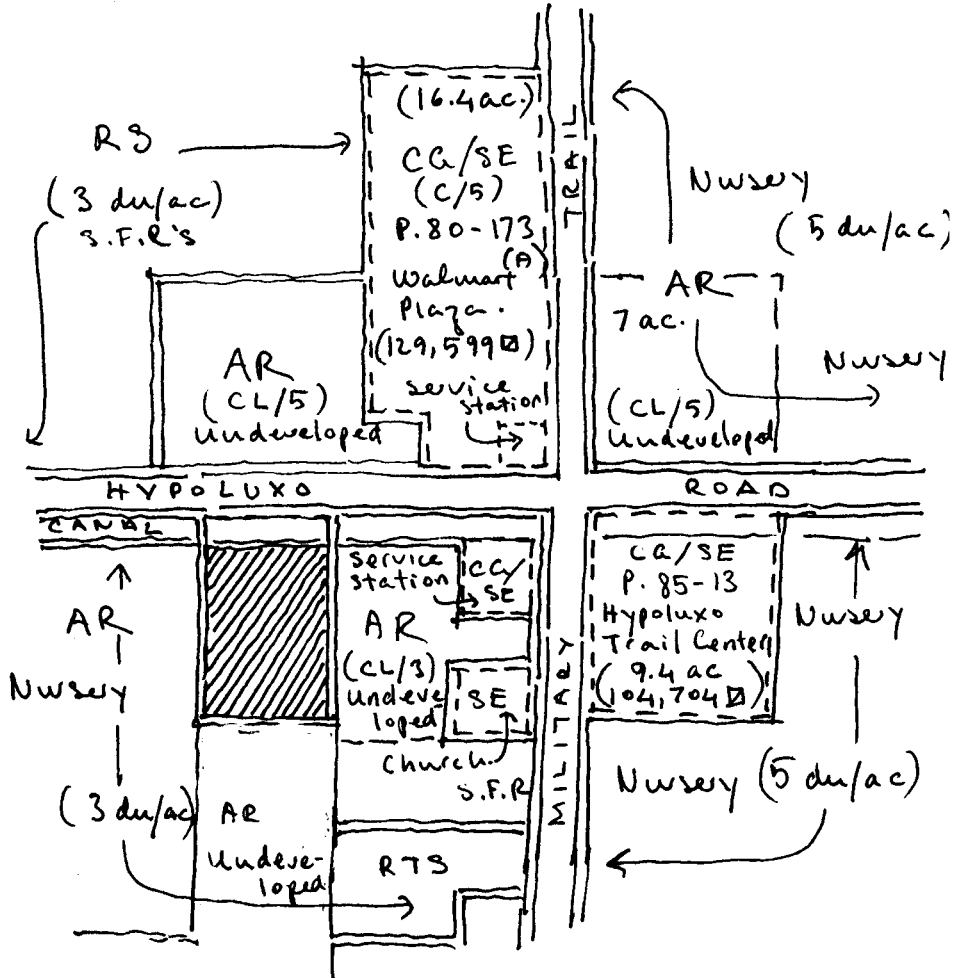 (16.4 ac.)
CG/SE
(C/5)
P. 80-173
(A)
Walmart
Plaza.
(129,599 ⍁)
service
station
TRAIL
RS
(3 du/ac)
S.F.R'S
Nursery
(5 du/ac)
AR
7 ac.
Nursery
(CL/5)
Undeveloped
AR
(CL/5)
Undeveloped
HYPOLUXO
ROAD
CANAL
AR
Nursery
(3 du/ac)
service
station
CG/
SE
AR
(CL/3)
Undeve
loped
SE
Church
S.F.R
MILITARY
CG/SE
P. 85-13
Hypoluxo
Trail Center
9.4 ac
(104,704 ⍁)
Nursery
Nursery (5 du/ac)
AR
Undeve-
loped
RTS